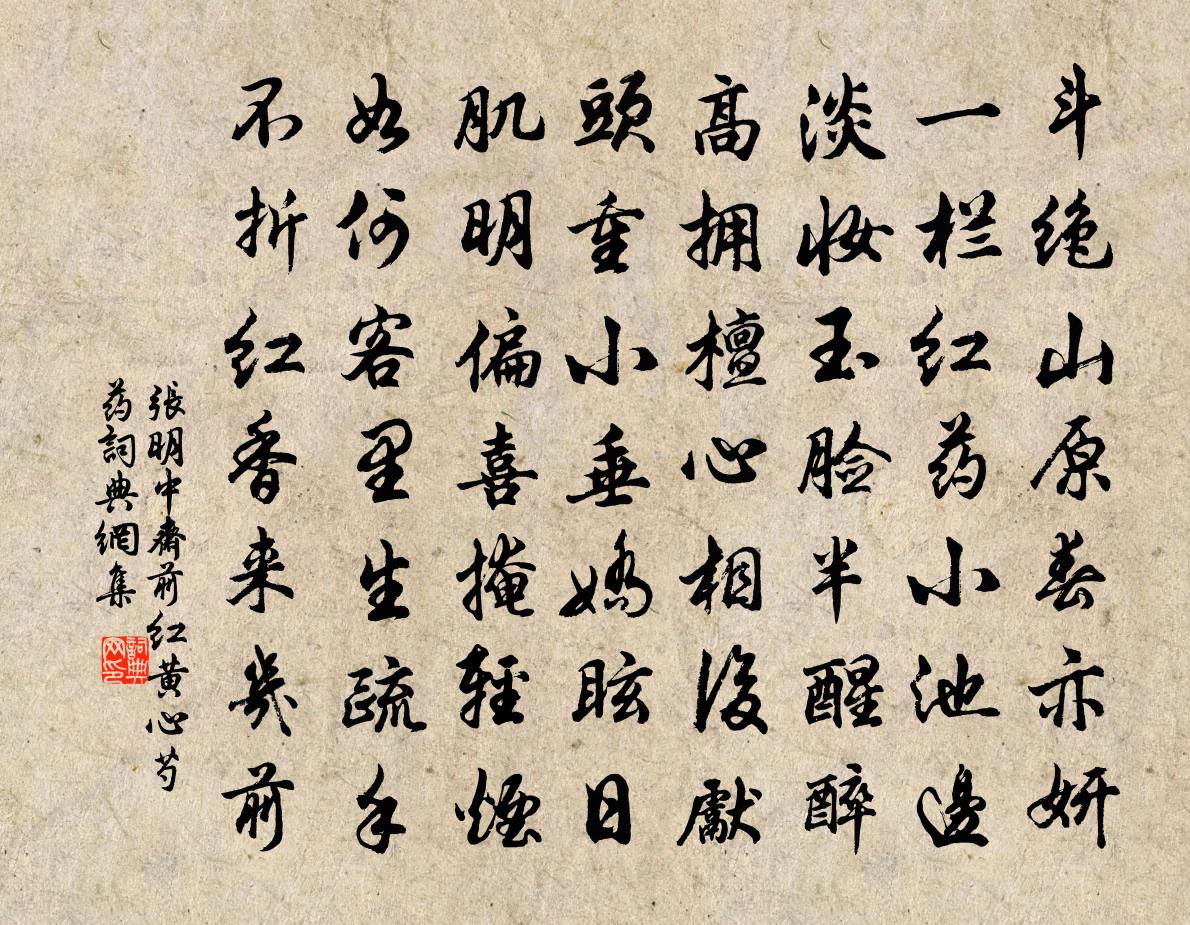 斗绝山原春亦妍
一栏红药小池边
淡妆玉脸半醒醉
高拥檀心相后献
頭重小垂嬌眩日
肌明偏喜掩輕煙
如何客里生疏手
不折红香来几前
張明中齋前红黄心芍
药詞典網集
詞典
网印